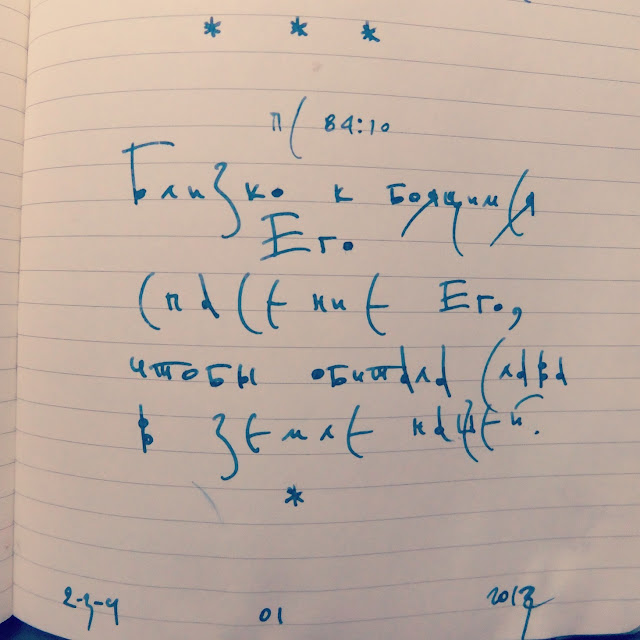 * * *
Пс 84:10
Близко к боящимся
Его
спасение Его,
чтобы обитала слава
в земле нашей.
*
2-3-4 01 2017